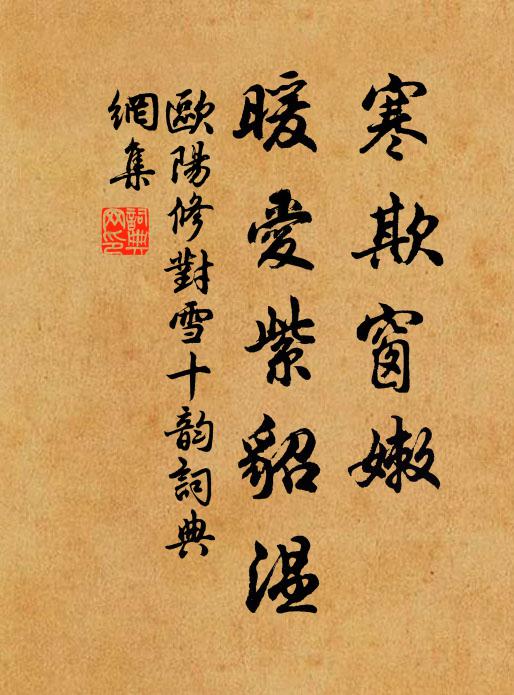 寒欺窗嫩
暖愛紫貂温
歐陽修對雪十韵詞典
網集
詞典
网印